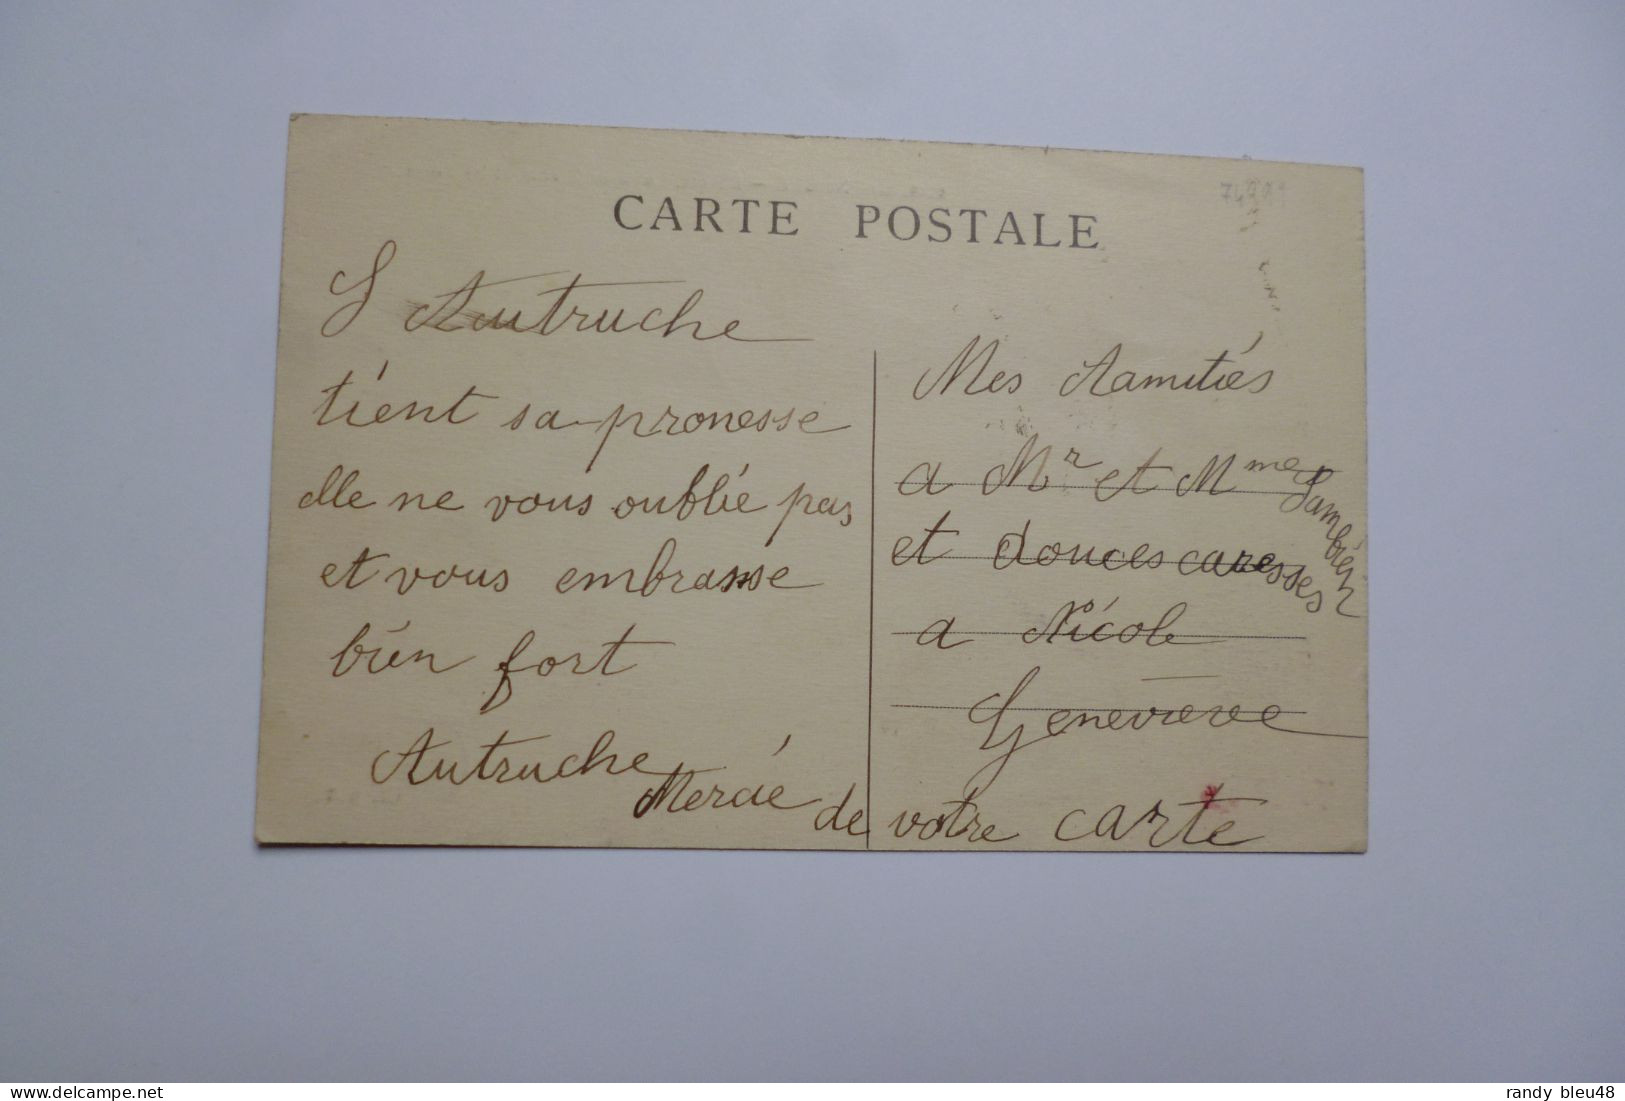 CARTE POSTALE
L Autruche
tient sa promesse
elle ne vous oublie pas
et vous embrasse
bien fort
Autruche
Mes Aamitiés
a Mr et Mme
et douces caresses
a Nicole
Genevieve
Mercie de votre carte
www.delcampe.net
randy bleu48